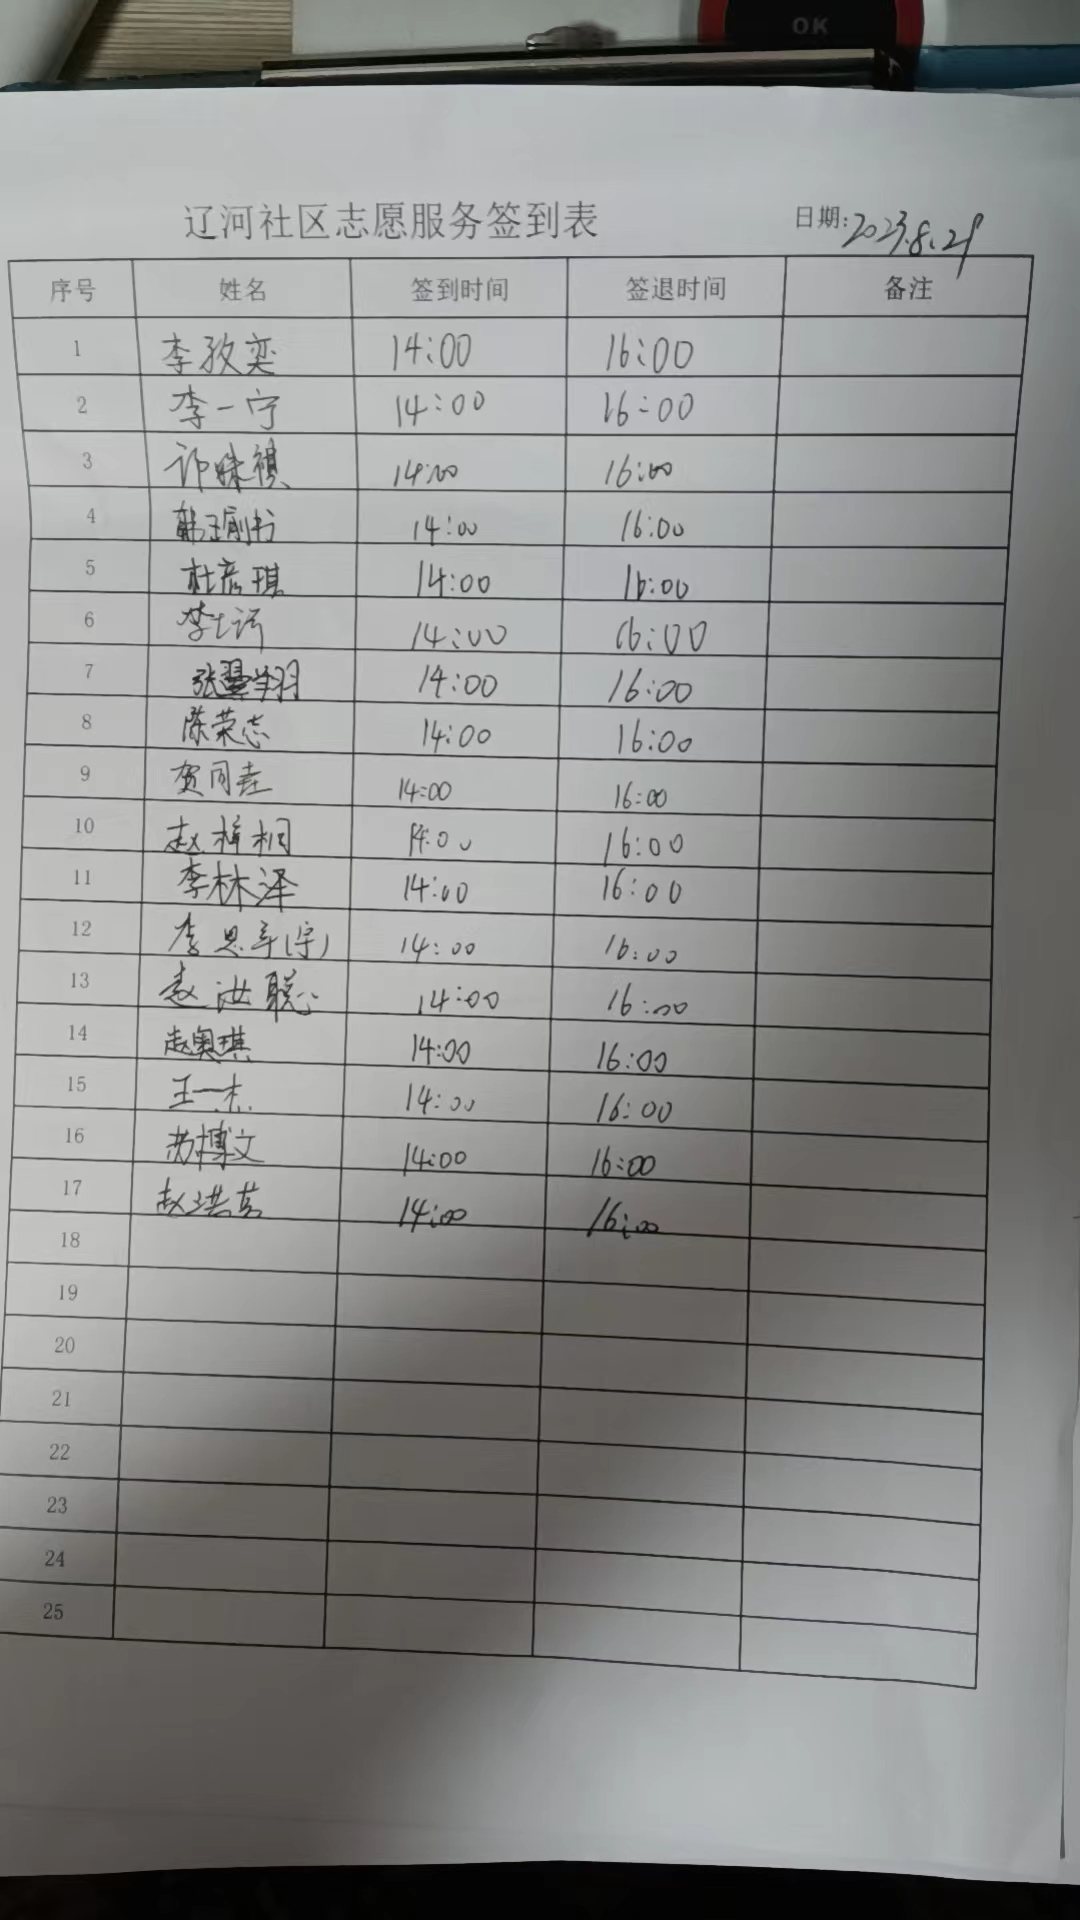 OK
辽河社区志愿服务签到表 日期: 2023.8.21
序号 姓名 签到时间 签退时间 备注
1 李孜奕 14:00 16:00
2 李一宁 14:00 16:00
3 14:00 16:00
4 14:00 16:00
5 杜彦琪 14:00 16:00
6 14:00 16:00
7 14:00 16:00
8 陈荣志 14:00 16:00
9 贺同垚 14:00 16:00
10 赵梓桐 14:00 16:00
11 李林泽 14:00 16:00
12 14:00 16:00
13 赵汝聪 14:00 16:00
14 赵奥琪 14:00 16:00
15 王一杰 14:00 16:00
16 14:00 16:00
17 14:00 16:00
18
19
20
21
22
23
24
25